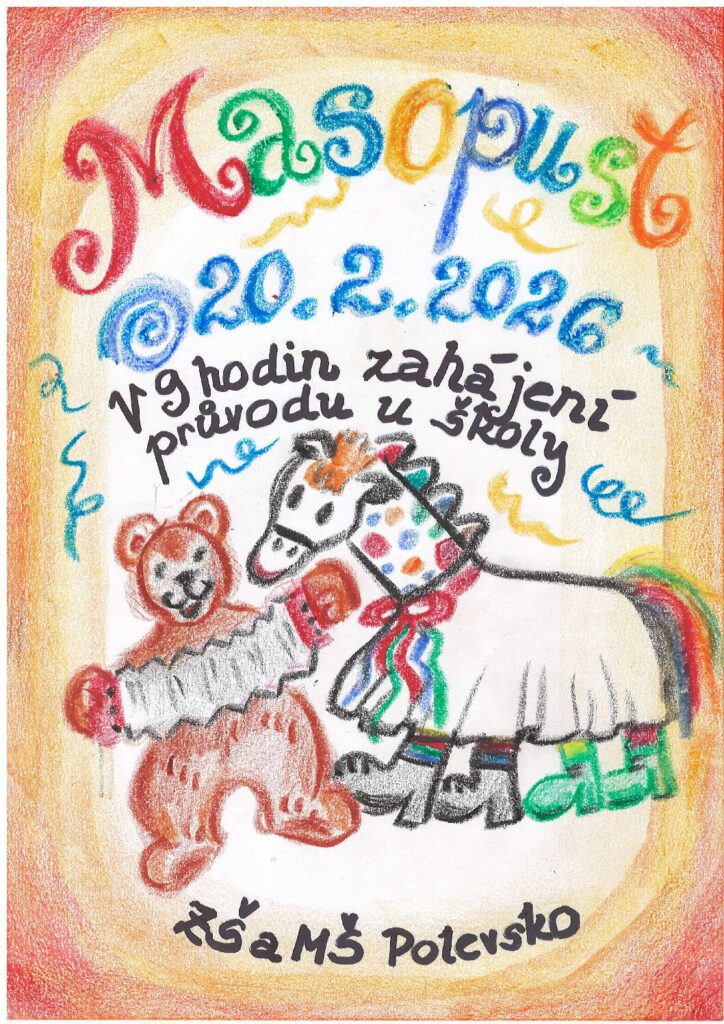 Masopust
20.2.2026
v 9 hodin zahájení
průvodu u školy
ZŠ a MŠ Polevsko